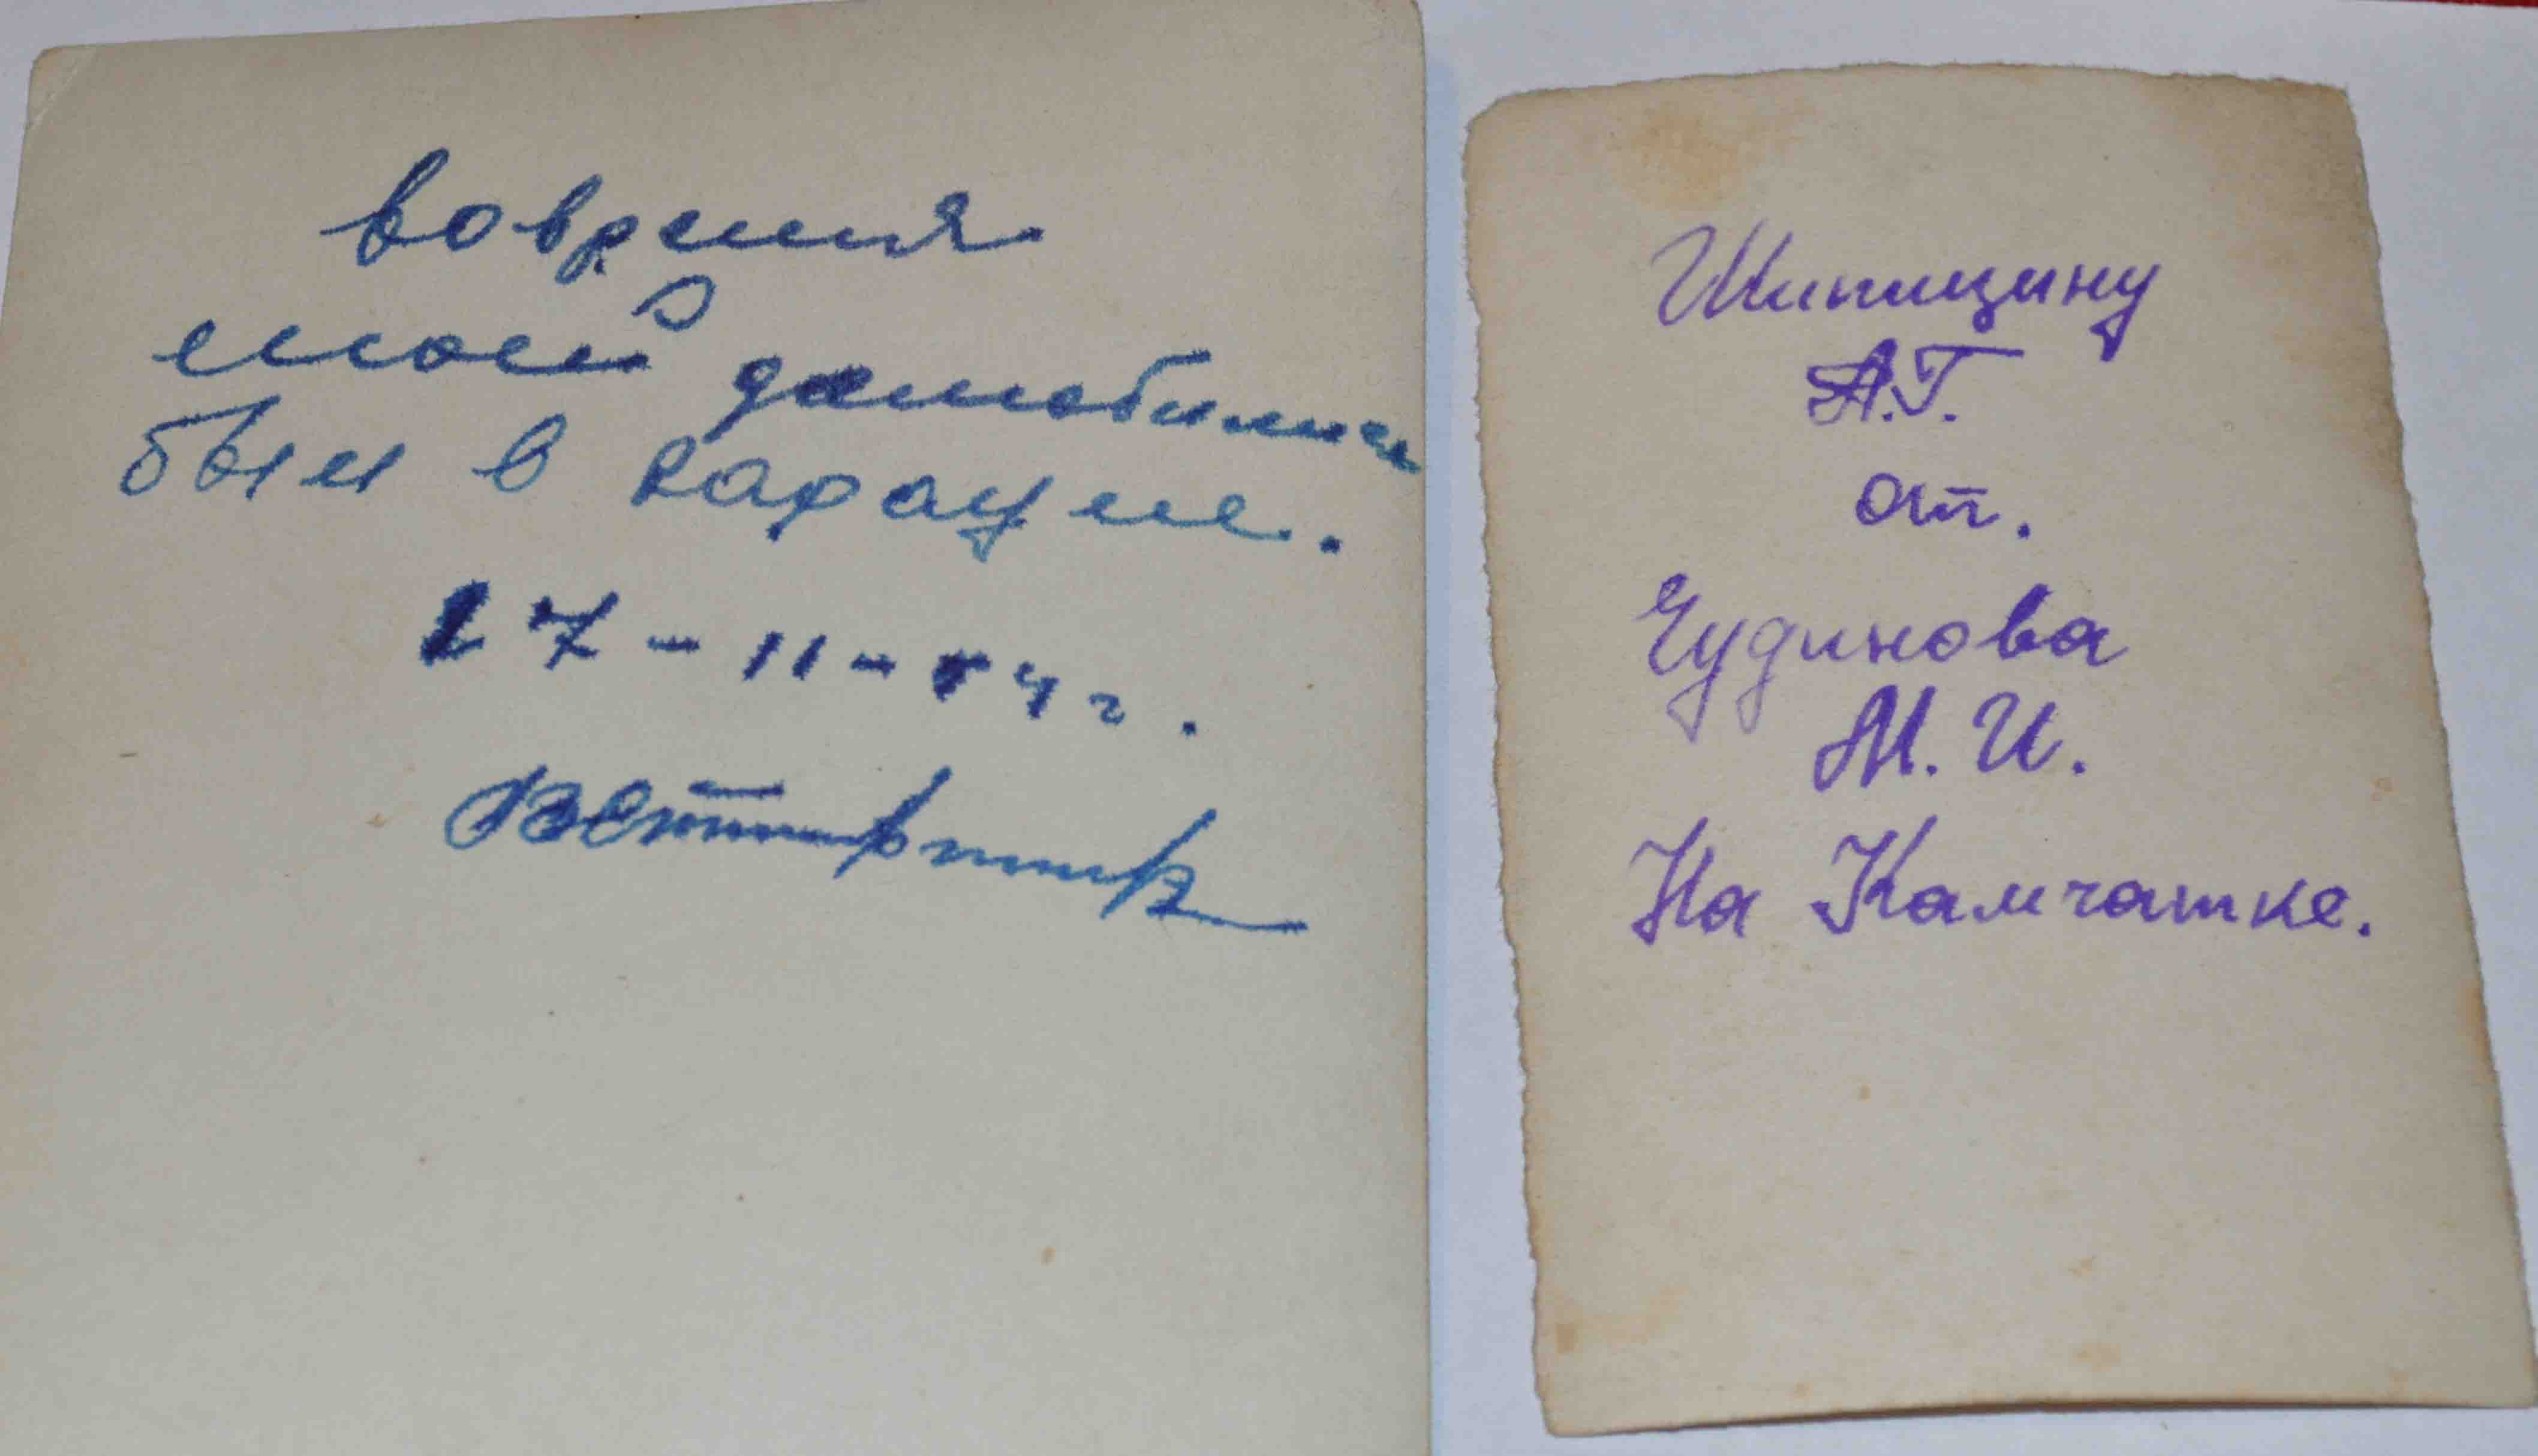 вовремя
моей домобилиси
был в карауле.
27-11-54г.
Шипицину
А.Г.
от.
Чудинова
М.И.
На Камчатке.